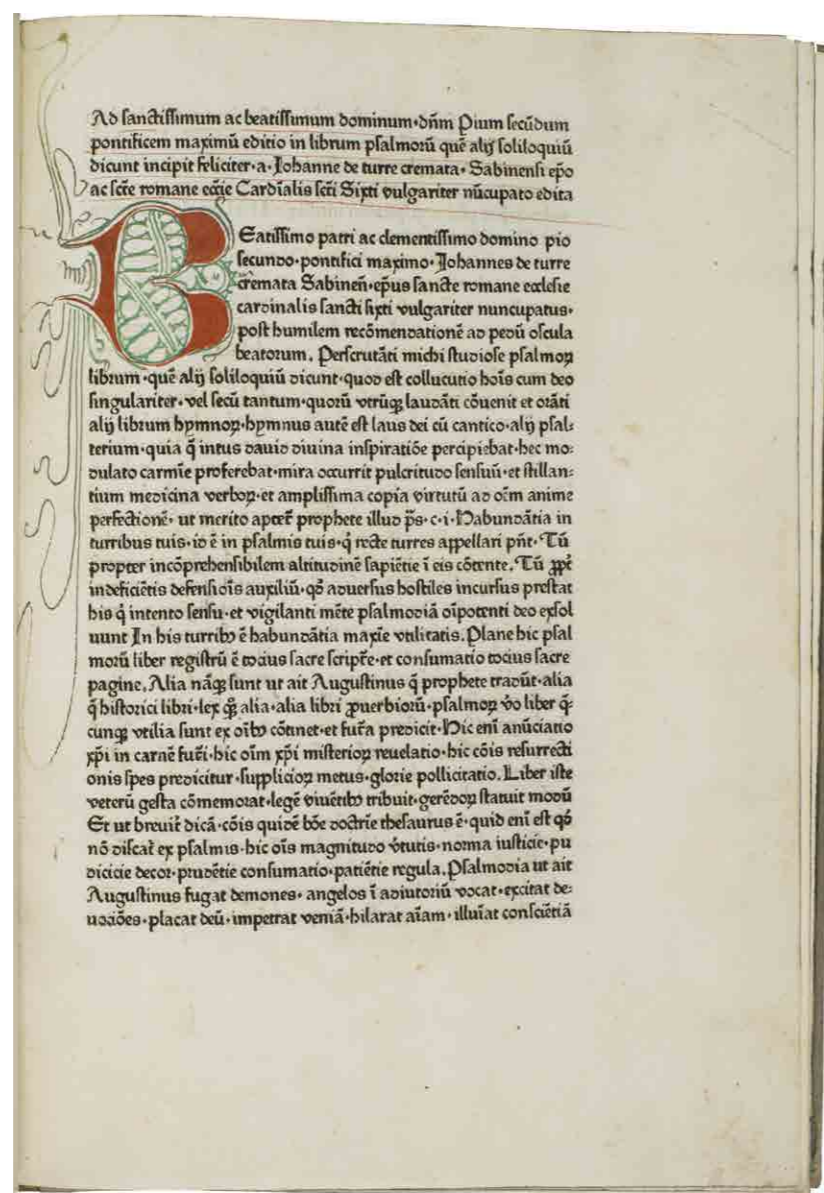 Ad sanctissimum ac beatissimum dominum·dn̄m Pium secūdum
pontificem maximū editio in librum psalmorū quē alij soliloquiū
dicunt incipit feliciter·a·Johanne de turre cremata·Sabinensi ep̄o
ac scr̄e romane ecc̄ie Cardīalis scr̄i Sixti vulgariter nūcupato edita
BEatissimo patri ac clementissimo domino pio
secundo·pontifici maximo·Johannes de turre
cremata Sabineñ·ep̄us sancte romane ecclesie
cardinalis sancti sixti vulgariter nuncupatus·
post humilem recōmendationē ad pedū oscula
beatorum. Perscrutāti michi studiose psalmoꝝ
librum·quē alij soliloquiū dicunt·quod est collucutio hoīs cum deo
singulariter·vel secū tantum·quorū vtrūqꝫ laudāti cōuenit et orāti
alij librum hymnoꝝ·hymnus autē est laus dei cū cantico·alij psal⸗
terium·quia q̄ intus dauid diuina inspiratiōe percipiebat·hec mo⸗
dulato carmīe proferebat·mira occurrit pulcritudo sensuū·et stillan⸗
tium medicina verboꝝ·et amplissima copia virtutū ad oīm anime
perfectionē· ut merito aptet̄ prophete illud p̄s·c·i·Habundātia in
turribus tuis·id ē in psalmis tuis·q̄ recte turres appellari pn̄t·Tū
propter incōprehensibilem altitudinē sapiētie ī eis cōtente.Tū ꝓpt̄
indeficiētis defensiōis auxiliū·qd̄ aduersus hostiles incursus prestat
his q̄ intento sensu·et vigilanti mēte psalmodiā oīpotenti deo exsol
uunt In his turribꝫ ē habundātia maxīe vtilitatis.Plane hic psal
morū liber registrū ē tocius sacre script̄e·et consumatio tocius sacre
pagine.Alia nāqꝫ sunt ut ait Augustinus q̄ prophete tradūt·alia
q̄ historici libri·lex qꝫ alia·alia libri ꝓuerbiorū·psalmoꝝ v̄o liber q̄⸗
cunqꝫ vtilia sunt ex oībꝫ cōtinet·et fut̄a predicit·Hic enī anūciatio
xp̄i in carnē fut̄i·hic oīm xp̄i misterioꝝ reuelatio·hic cōis resurrecti
onis spes predicitur·supplicioꝝ metus·glorie pollicitatio.Liber iste
veterū gesta cōmemorat·legē viuētibꝫ tribuit·gerēdoꝝ statuit modū
Et ut breuit̄ dicā·cōis quidē bōe doctrīe thesaurus ē·quid enī est qd̄
nō discat̄ ex psalmis·hic oīs magnitudo v̄tutis·norma iusticie·pu
dicicie decor·prudētie consumatio·patiētie regula.Psalmodia ut ait
Augustinus fugat demones·angelos ī adiutoriū vocat·excitat de⸗
uociōes·placat deū·impetrat veniā·hilarat aīam·illuīat consciētiā